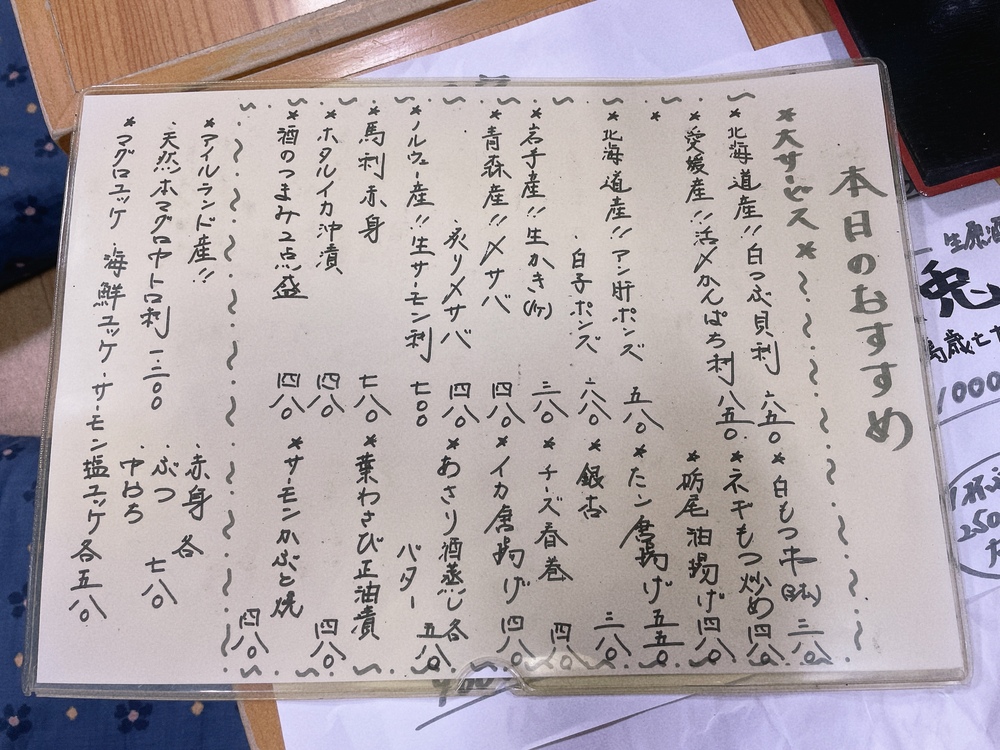 本日のおすすめ
*大サービス*
*北海道産!!白つぶ貝刺 六五〇
*愛媛産!!活〆かんぱち刺 八五〇
*北海道産!!アン肝ポンズ 五八〇
・白子ポンズ 六八〇
*岩手産!!生かき(1ケ) 三八〇
*青森産!!〆サバ 四八〇
炙り〆サバ 四八〇
*ノルウェー産!!生サーモン刺 七〇〇
*馬刺赤身 七八〇
*ホタルイカ沖漬 四八〇
*酒のつまみ2点盛 四八〇
*白もつ串(2本) 三八〇
*ネギもつ炒め 四八〇
栃尾油揚げ 四八〇
*たこ唐揚げ 五五〇
*銀杏 三八〇
*チーズ春巻 四八〇
*イカ唐揚げ 四八〇
*あさり酒蒸し各
バター 五八〇
*葉わさび正油漬 四八〇
*サーモンかぶと焼 四八〇
*アイルランド産!!
・天然ホマグロ中トロ刺 一二〇〇
・赤身
・ぶつ 各
・中おち 七八〇
*マグロユッケ 海鮮ユッケ・サーモン塩ユッケ各五八〇
生原酒
兎
1000
250